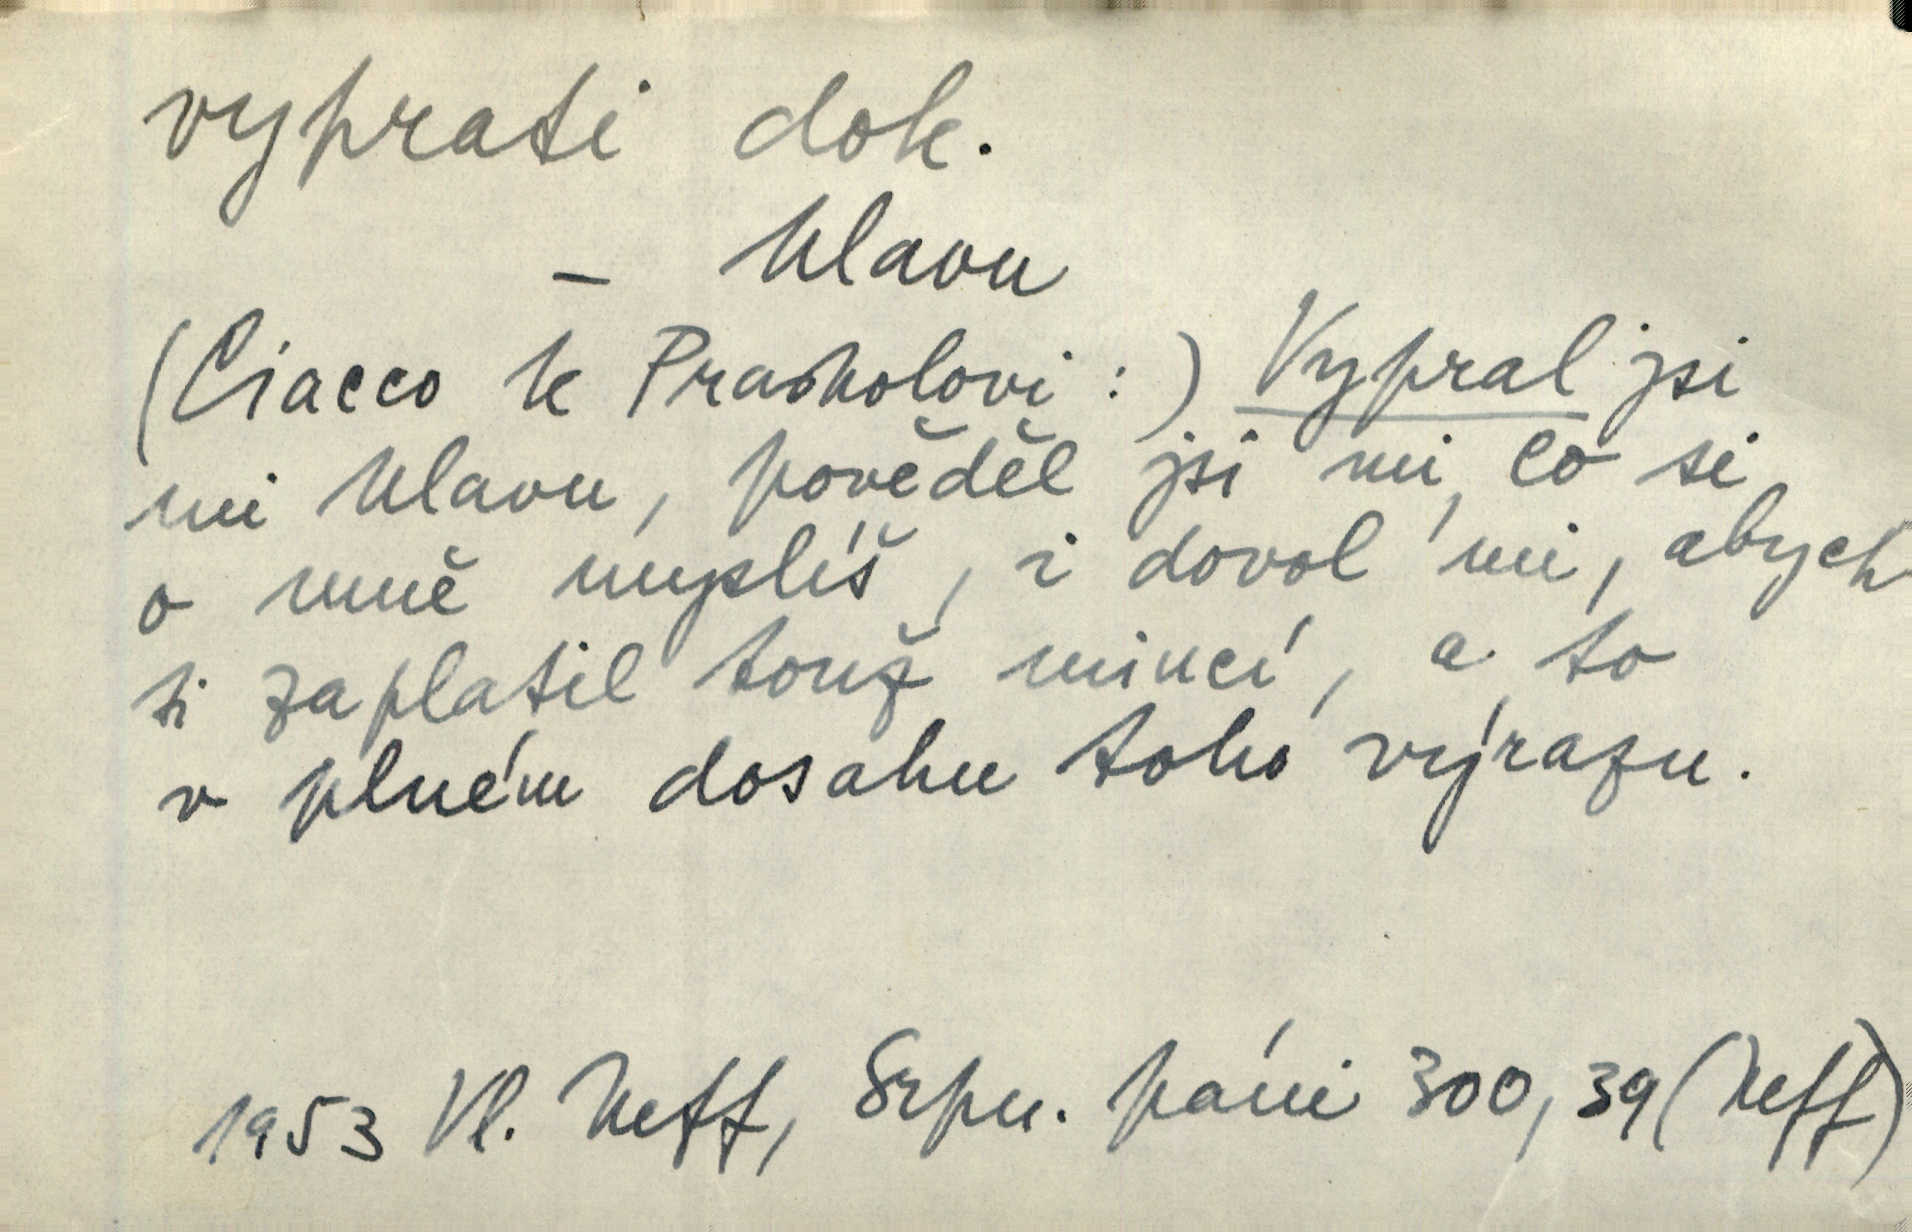 vyprati dok.
– hlavu
(Ciacco k Prackolovi:) Vypral jsi
mi hlavu, pověděl jsi mi, co si
o mně myslíš, i dovol mi, abych
ti zaplatil touž mincí, a to
v plném dosahu toho výrazu.
1953 Vl. Neff, Srpn. páni 300, 39 (Neff)